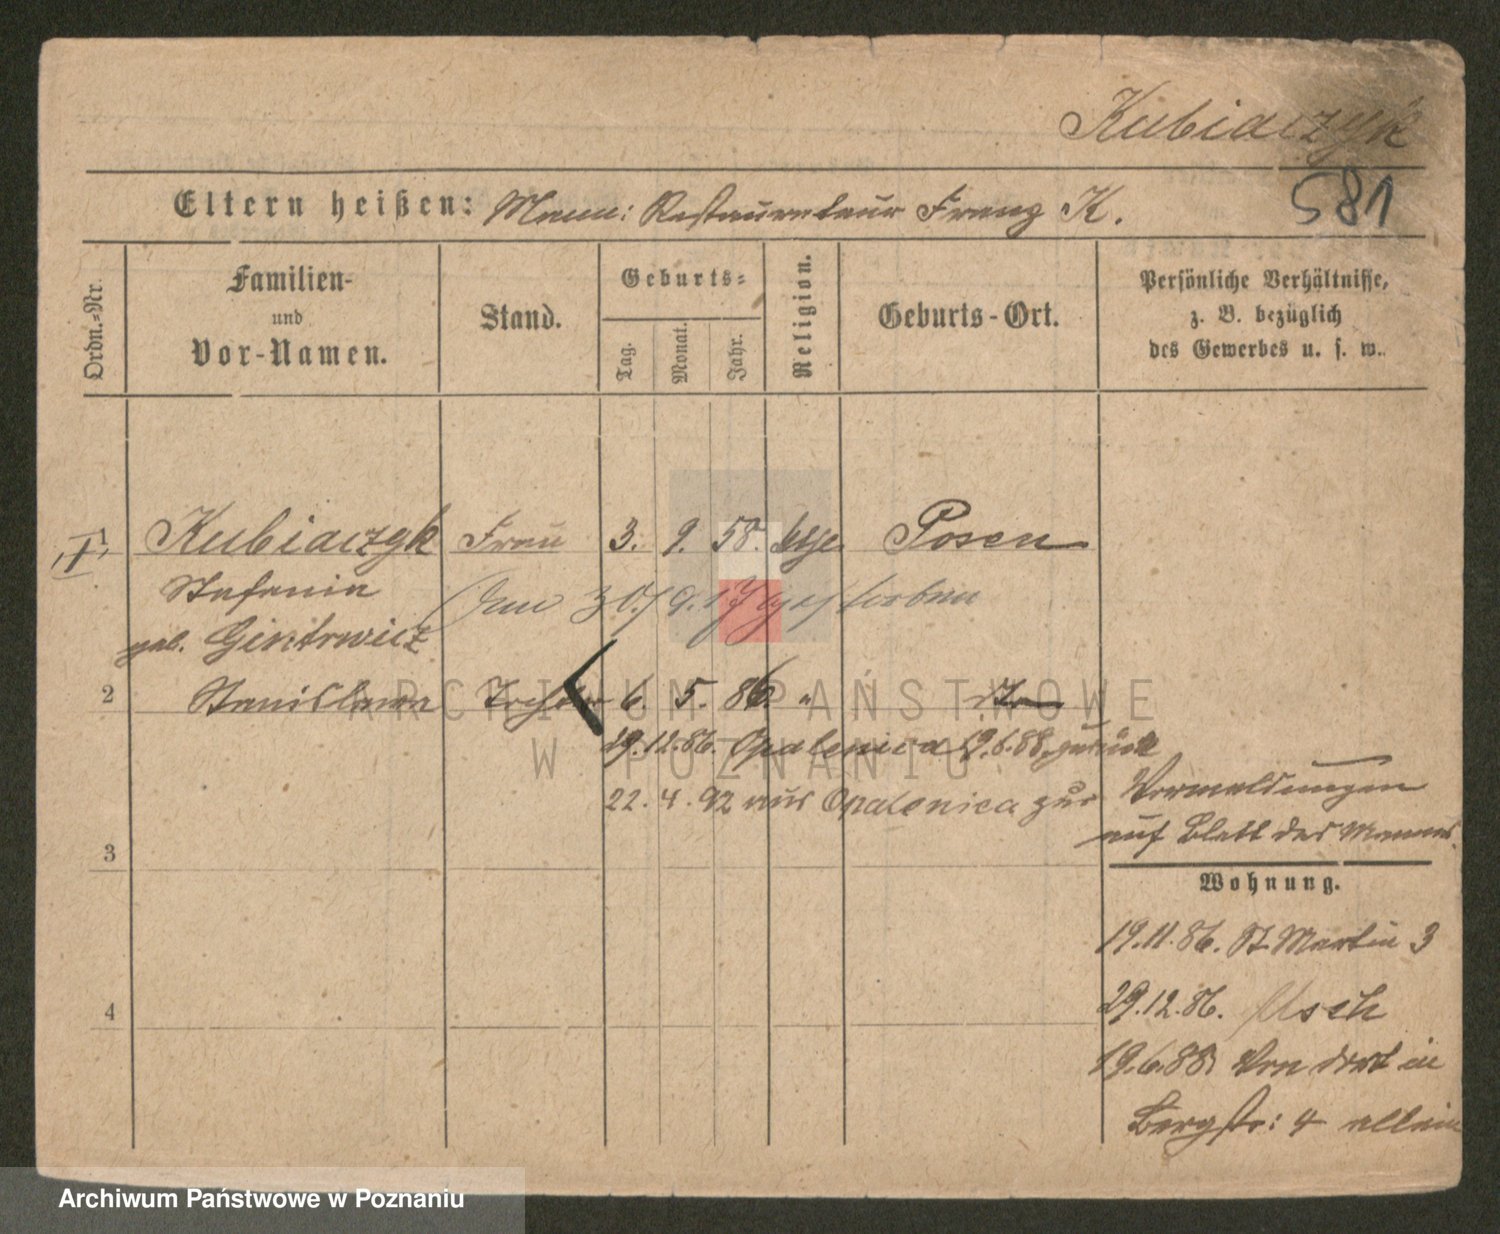 Kubiaczyk
581
Eltern heißen: Mann: Restaurateur Franz K.
Ordn.-Nr.
Familien-
und
Vor-Namen.
Stand.
Geburts-
Tag.
Monat.
Jahr.
Religion.
Geburts-Ort.
Persönliche Verhältnisse,
z. B. bezüglich
des Gewerbes u. s. w.
Kubiaczyk Frau 3. 9. 58. Posen
Stefania
geb. Gintrowicz
30/9.17 gestorben
2 Stanislawa Tochter 6. 5. 86. "
29.12.86. Opalenica 19.6.88. zurück
22.4.92 aus Opalenica zur
Vormeldungen
auf Blatt des Mannes.
3
Wohnung.
19.11.86. St Martin 3
29.12.86.
4
19.6.88. Von dort in
Bergstr: 4 allein
ARCHIWUM PAŃSTWOWE
W POZNANIU
Archiwum Państwowe w Poznaniu